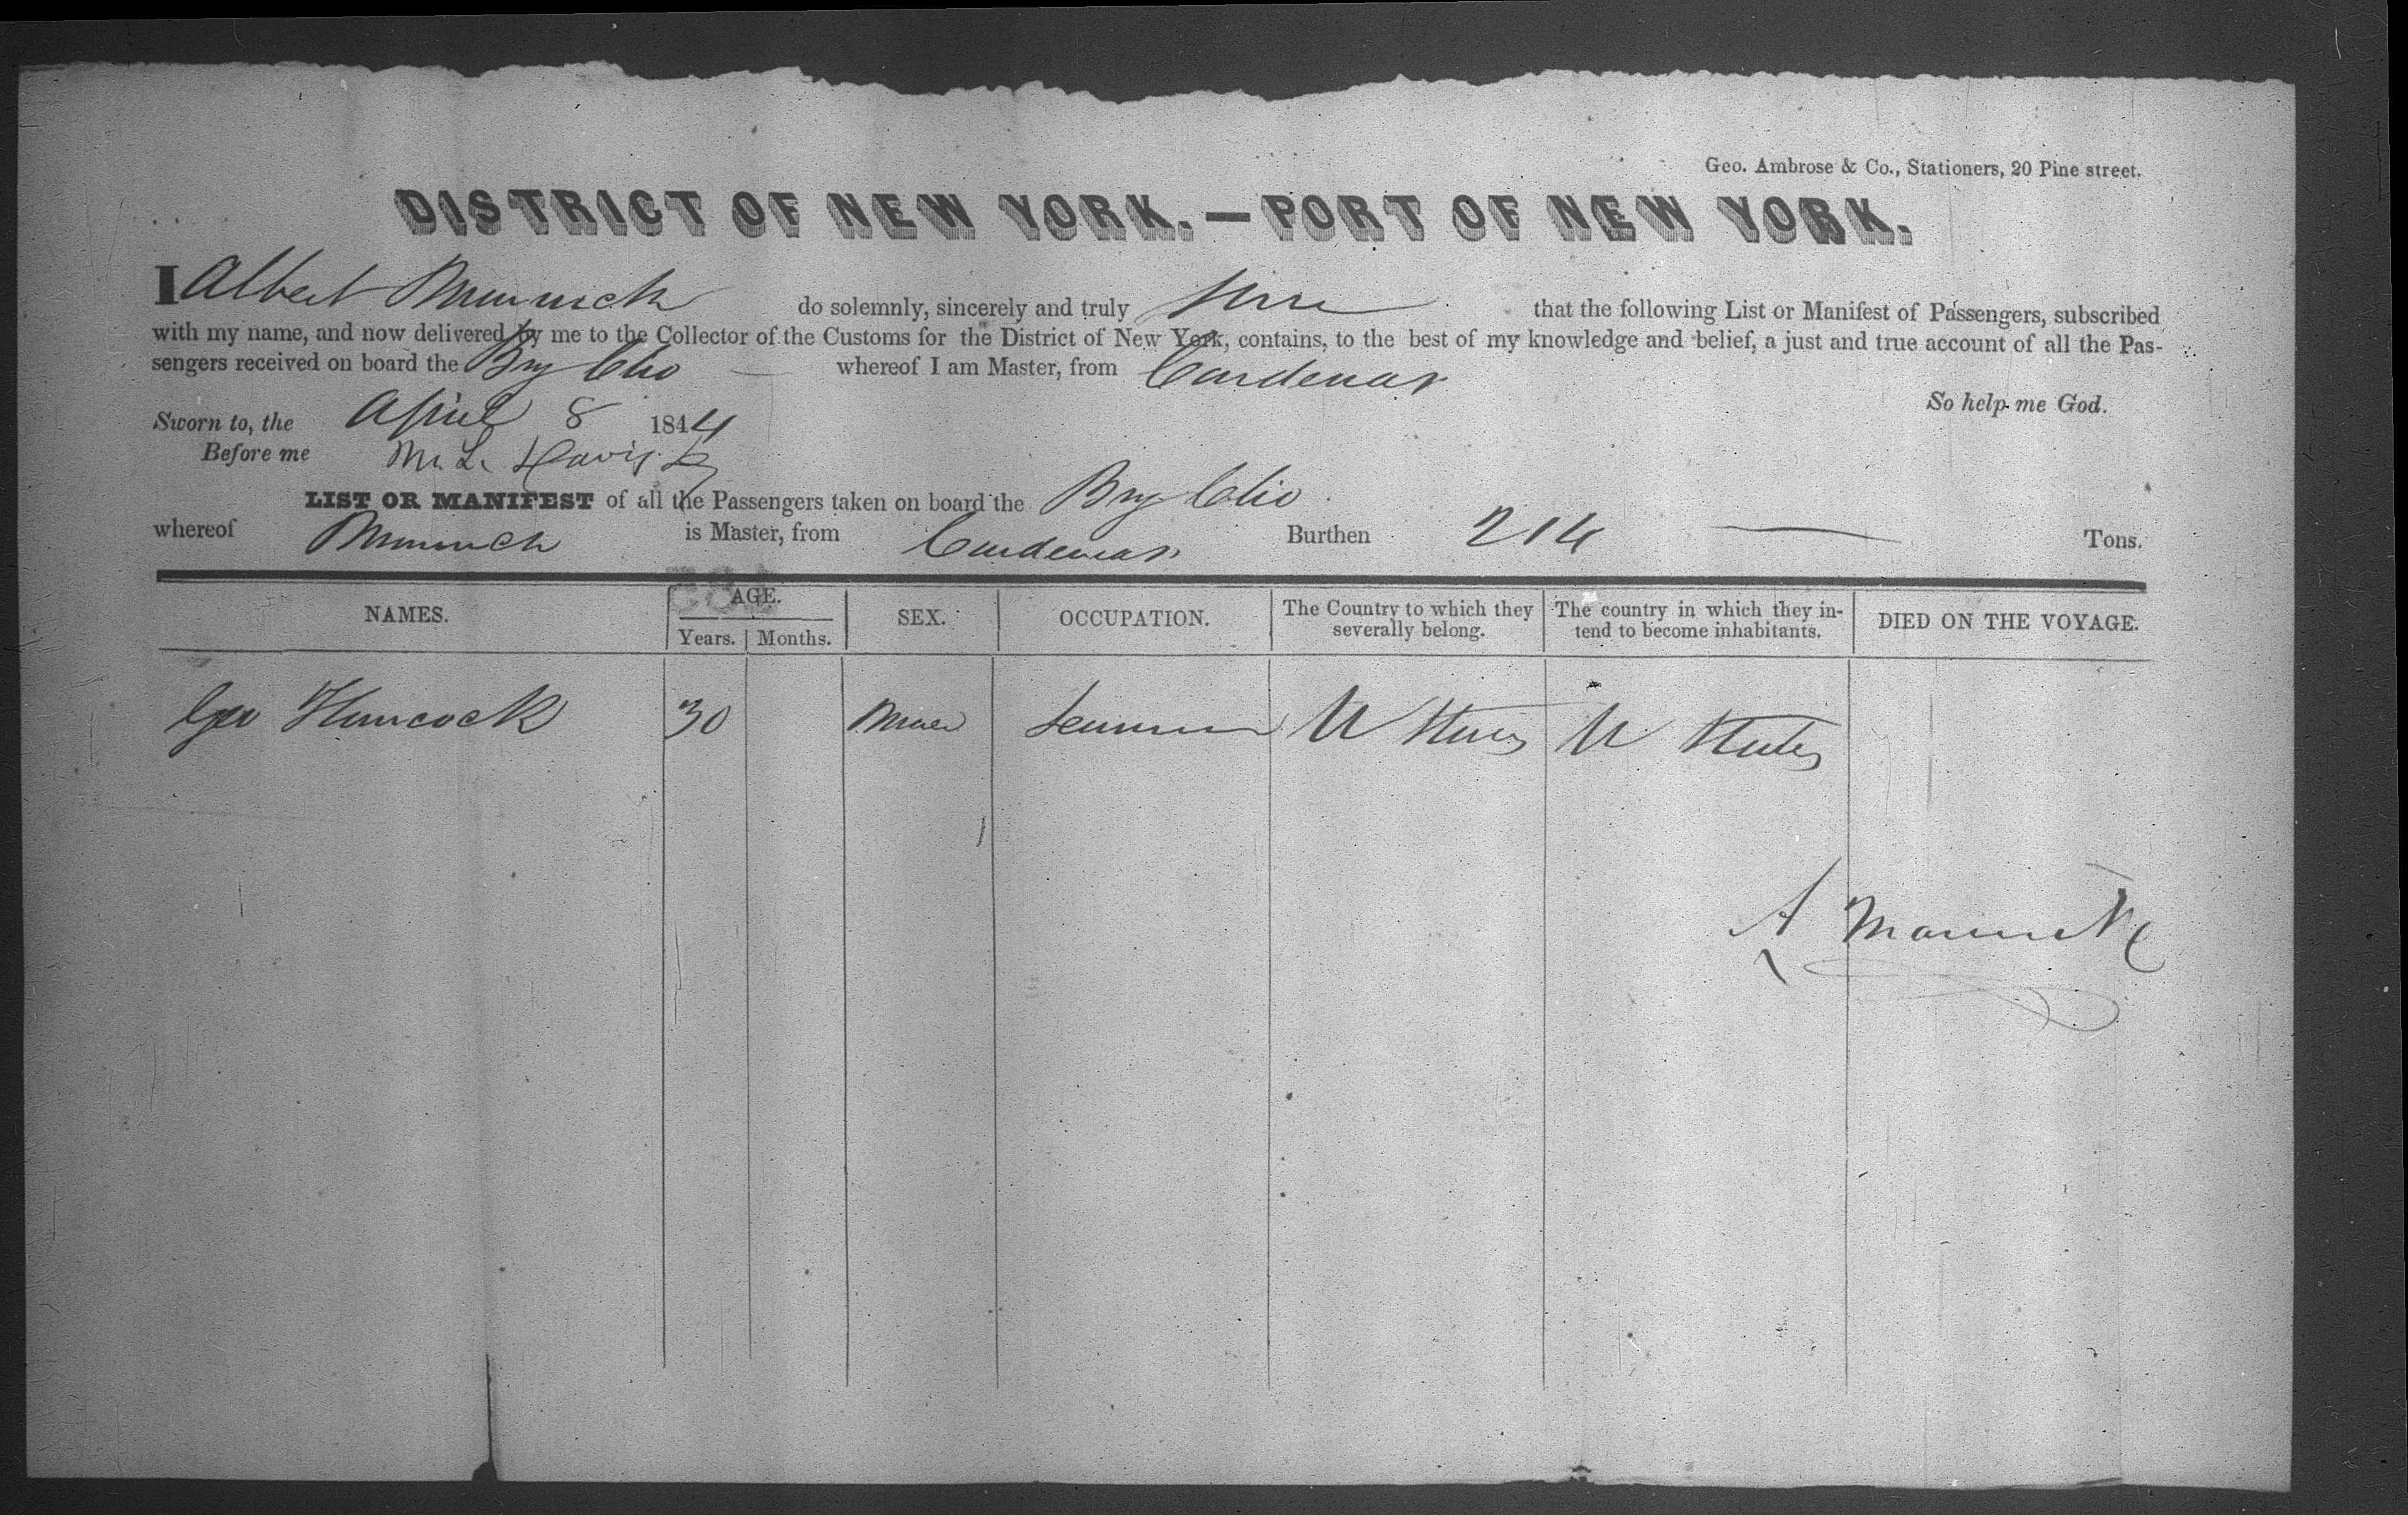 Geo. Ambrose & Co., Stationers, 20 Pine street.
DISTRICT OF NEW YORK.—PORT OF NEW YORK.
I Albert do solemnly, sincerely and truly that the following List or Manifest of Passengers, subscribed
with my name, and now delivered by me to the Collector of the Customs for the District of New York, contains, to the best of my knowledge and belief, a just and true account of all the Pas-
sengers received on board the Brig Clio whereof I am Master, from Cardenas
So help me God.
Sworn to, the April 8 1844
Before me M. L. Davis
LIST OR MANIFEST of all the Passengers taken on board the Brig Clio
whereof is Master, from Cardenas Burthen 214 Tons.
NAMES. AGE. SEX. OCCUPATION. The Country to which they severally belong. The country in which they in- tend to become inhabitants. DIED ON THE VOYAGE.
Years. Months.
Geo Hancock 30 Male Seaman U States U States
A